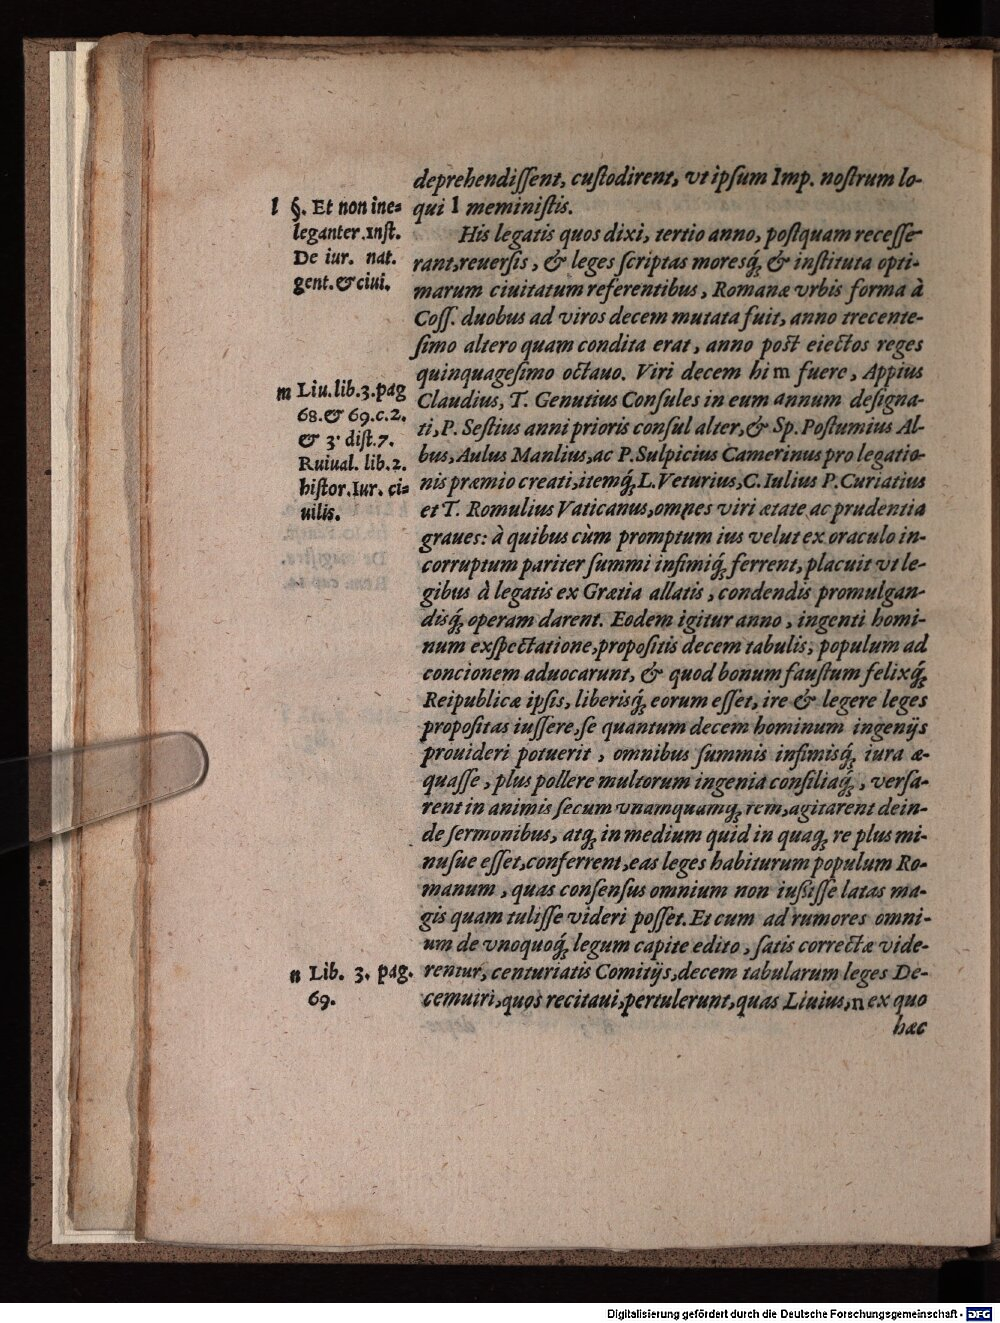 deprehendiſſent, cuſtodirent, vt ipſum Imp. noſtrum lo-
qui l meminiſtis.
l §. Et non ine-
leganter. inſt.
De iur. nat.
gent. & ciui.
His legatis quos dixi, tertio anno, poſtquam receſſe-
rant, reuerſis, & leges ſcriptas moresq́; & inſtituta opti-
marum ciuitatum referentibus, Romanæ vrbis forma à
Coſſ. duobus ad viros decem mutata fuit, anno trecente-
ſimo altero quam condita erat, anno poſt eiectos reges
quinquageſimo octauo. Viri decem hi m fuere, Appius
m Liu. lib. 3. pag
68. & 69. c. 2.
& 3. diſt. 7.
Ruiual. lib. 2.
hiſtor. Iur. ci-
uilis.
Claudius, T. Genutius Conſules in eum annum deſigna-
ti, P. Seſtius anni prioris conſul alter, & Sp. Poſtumius Al-
bus, Aulus Manlius, ac P. Sulpicius Camerinus pro legatio-
nis præmio creati, itemq́; L. Veturius, C. Iulius P. Curiatius
et T. Romulius Vaticanus, omnes viri ætate ac prudentia
graues: à quibus cùm promptum ius velut ex oraculo in-
corruptum pariter ſummi infimiq́; ferrent, placuit vt le-
gibus à legatis ex Grætia allatis, condendis promulgan-
disq́; operam darent. Eodem igitur anno, ingenti homi-
num exſpectatione, propoſitis decem tabulis, populum ad
concionem aduocarunt, & quod bonum fauſtum felixq́;
Reipublicæ ipſis, liberisq́; eorum eſſet, ire & legere leges
propoſitas iuſſere, ſe quantum decem hominum ingenijs
prouideri potuerit, omnibus ſummis infimisq́; iura æ-
quaſſe, plus pollere multorum ingenia conſiliaq́;, verſa-
rent in animis ſecum vnamquamq; rem, agitarent dein-
de ſermonibus, atq; in medium quid in quaq; re plus mi-
nuſue eſſet, conferrent, eas leges habiturum populum Ro-
manum, quas conſenſus omnium non iuſsiſſe latas ma-
gis quam tuliſſe videri poſſet. Et cum ad rumores omni-
um de vnoquoq́; legum capite edito, ſatis correctæ vide-
n Lib. 3. pag.
69.
rentur, centuriatis Comitijs, decem tabularum leges De-
cemuiri, quos recitaui, pertulerunt, quas Liuius, n ex quo
hæc
Digitalisierung gefördert durch die Deutsche Forschungsgemeinschaft - DFG